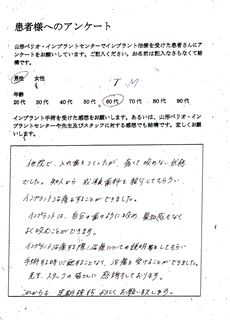 患者様へのアンケート
山形ペリオ・インプラントセンターでインプラント治療を受けた患者さんにア
ンケートをお願いしています。ご記入ください。お名前は記入なさらなくて結
構です。
男性 女性
T.M
年齢
20代 30代 40代 50代 60代 70代 80代 90代
インプラント手術を受けた感想をお願いします。あるいは、山形ペリオ・イン
プラントセンターや先生及びスタッフに対する感想でも結構です。宜しくお願
いします。
他院で、入れ歯をつくったが、痛くて咬めない状態
でした。知人から 歯科を紹介してもらい
インプラント治療をすることができました。
インプラントは、自分の歯のように咬め、違和感もなく
よく咬むことができます。
インプラント治療する際に治療についての説明等をしてもらい
手術する時に することなく、治療を受けることができました。
先生、スタッフの皆さんに感謝しております。
これからも定期検診よろしくお願いします。